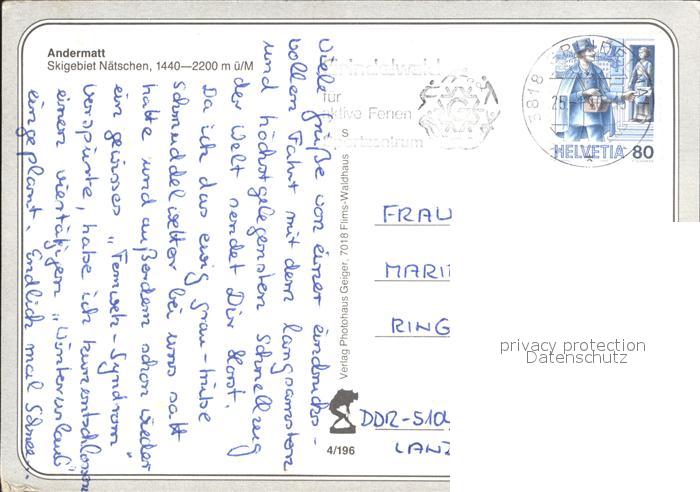 Andermatt
Skigebiet Nätschen, 1440—2200 m ü/M
Viele Grüße von einer eindrucks-
vollen Fahrt mit dem langsamsten
und höchstgelegensten Schnellzug
der Welt sendet Dir Horst.
Da ich das ewig grau-trübe
Schmuddelwetter bei uns satt
hatte und außerdem schon wieder
ein gewisses "Fernweh-Syndrom"
verspürte, habe ich kurzentschlossen
einen viertägigen "Winterurlaub"
eingeplant. Endlich mal Schnee...
Verlag Photohaus Geiger, 7018 Flims-Waldhaus
4/196
indelwald
für
ktive Ferien
s
rtzentrum
3818
25.
HELVETIA 80
FRAU
MARI
RING
DDR-510
LANG
privacy protection
Datenschutz